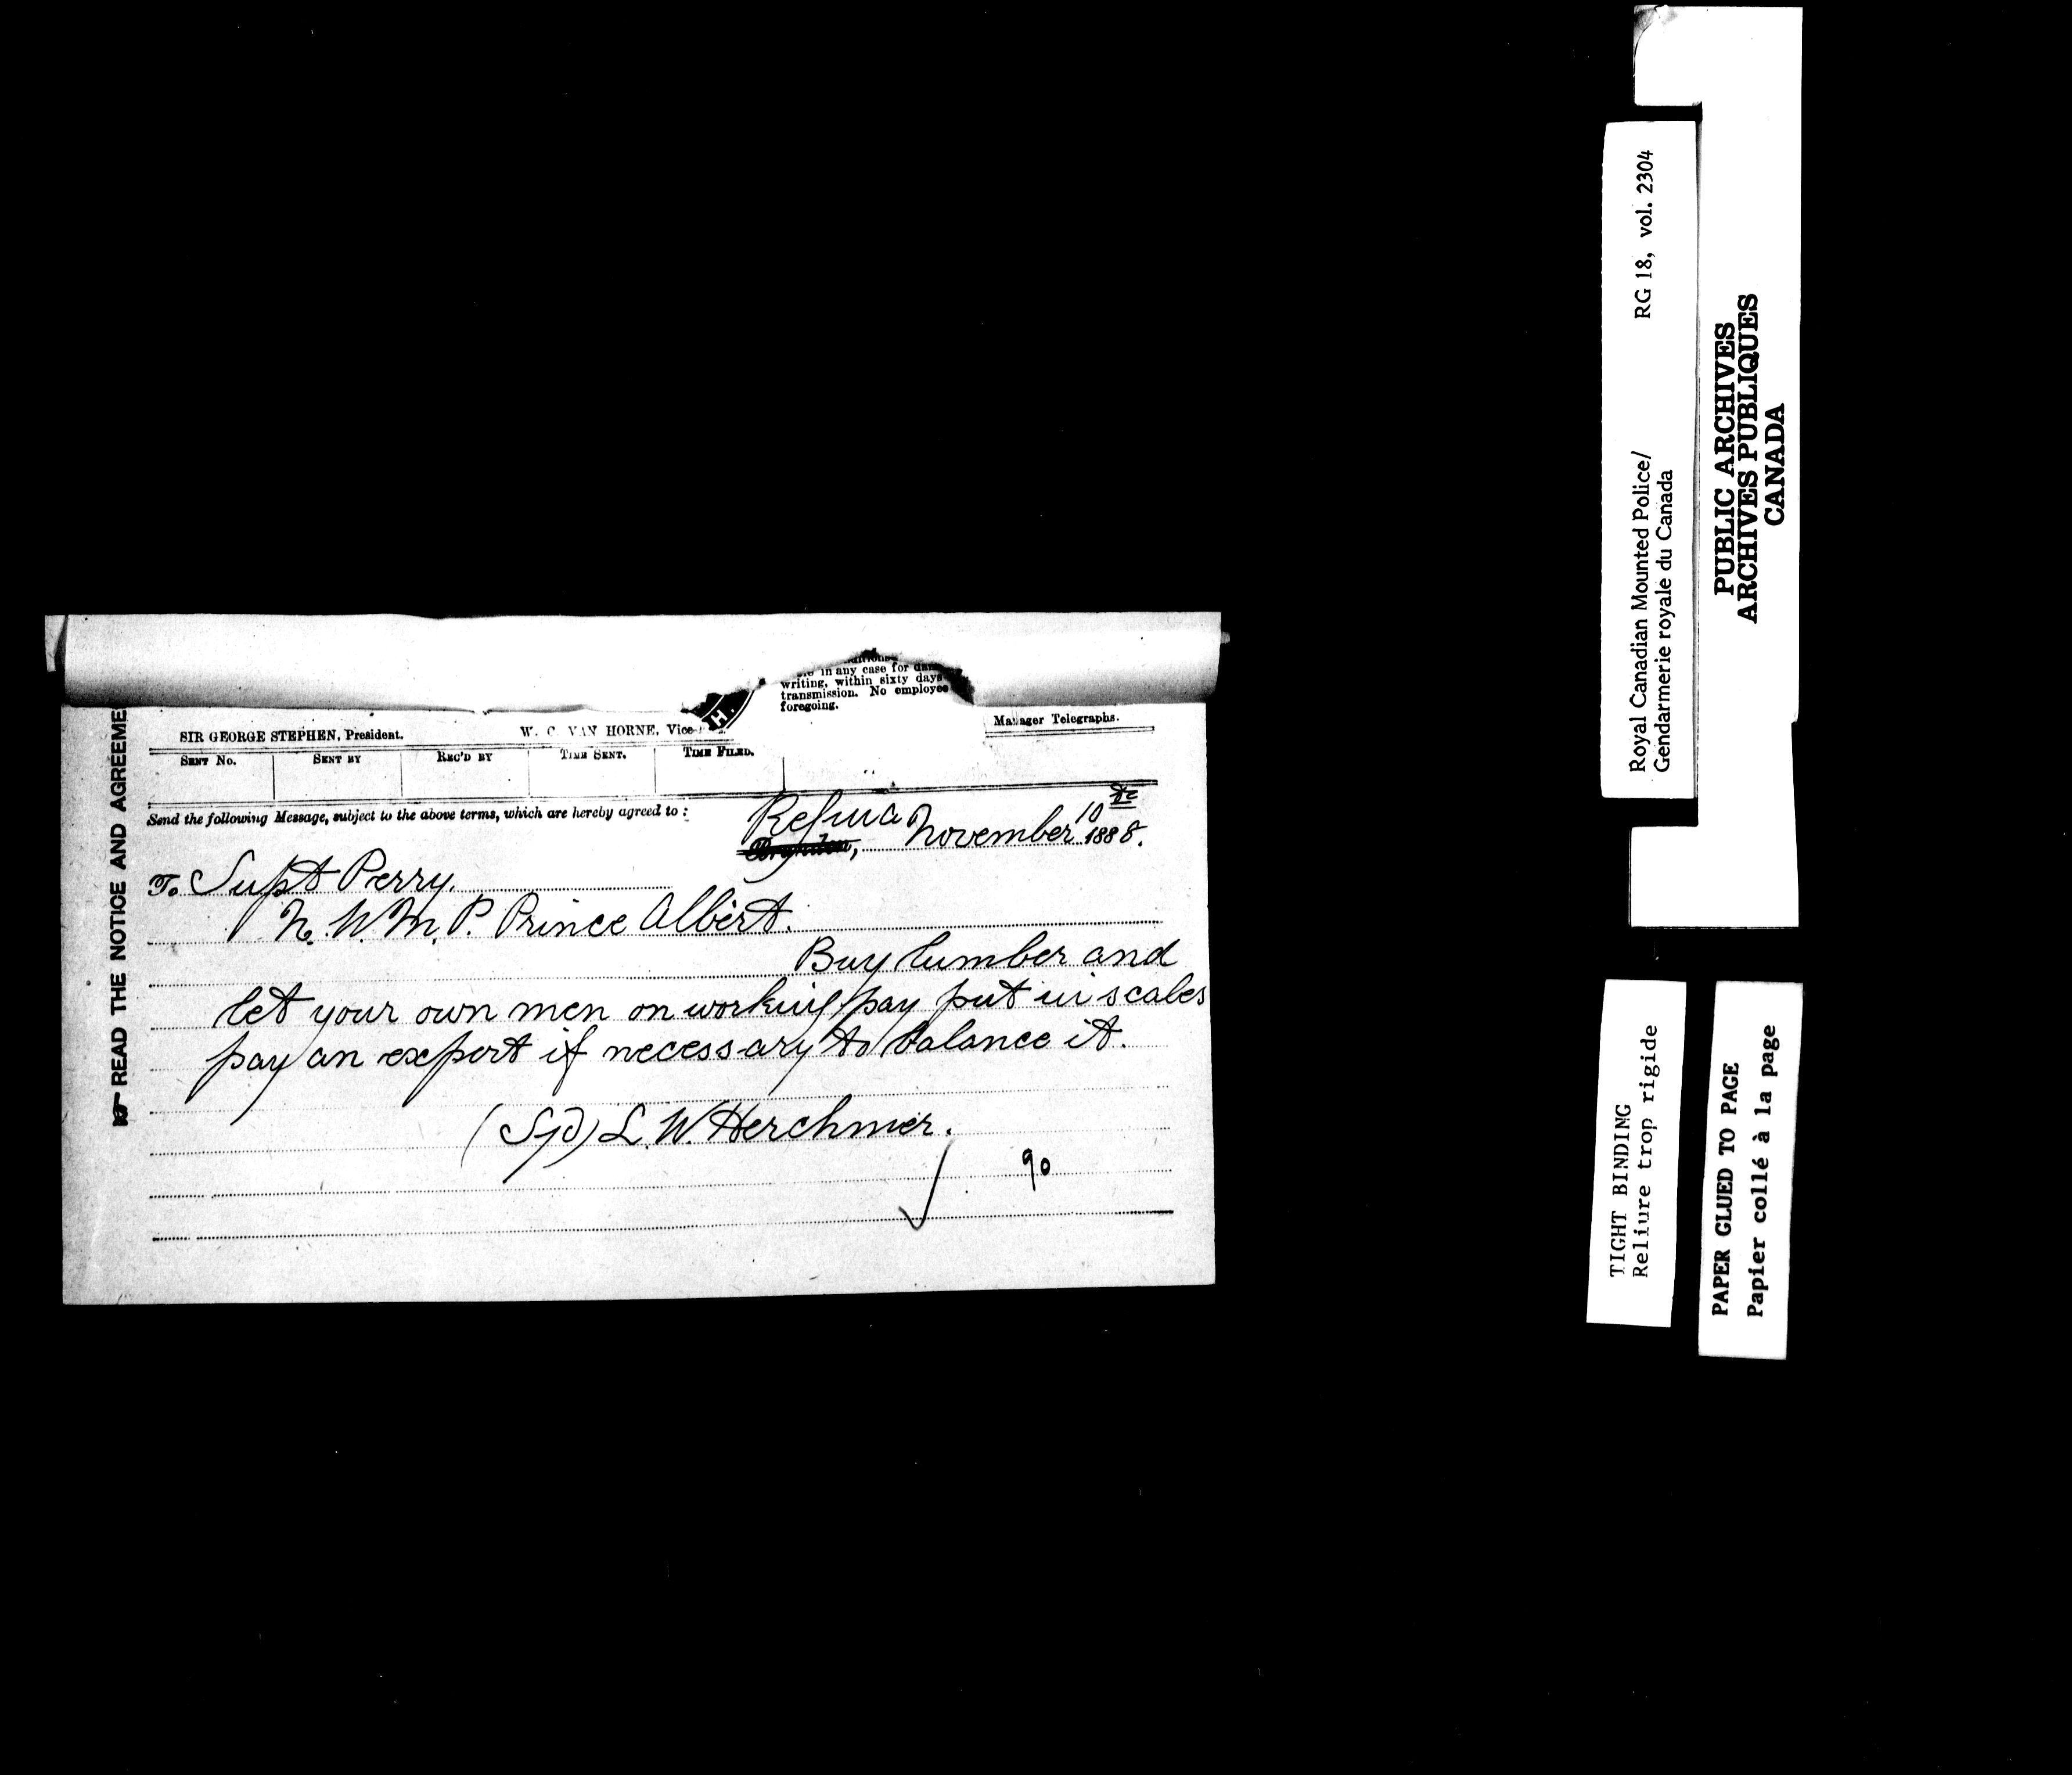 in any case for
writing, within sixty days
transmission. No employee
foregoing.
H.
SIR GEORGE STEPHEN, President.
W. C. VAN HORNE, Vice-
Manager Telegraphs.
SENT NO. SENT BY REC'D BY TIME SENT. TIME FILED.
Send the following Message, subject to the above terms, which are hereby agreed to:
Regina November 10th 1888.
To Supt Perry.
N. W. M. P. Prince Albert.
Buy lumber and
let your own men on working pay put in scales
pay an expert if necessary to balance it.
(Sgd) L. W. Herchmer.
90
READ THE NOTICE AND AGREEME
Royal Canadian Mounted Police/ RG 18, vol. 2304
Gendarmerie royale du Canada
PUBLIC ARCHIVES
ARCHIVES PUBLIQUES
CANADA
TIGHT BINDING
Reliure trop rigide
PAPER GLUED TO PAGE
Papier collé à la page